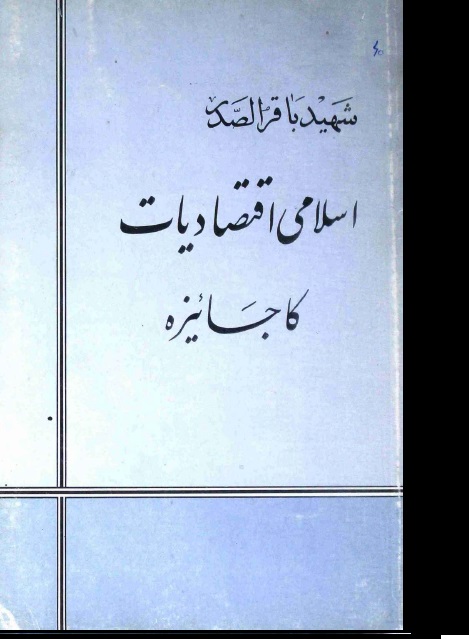 شہید باقر الصدر
اسلامی اقتصادیات
کا جائیزہ